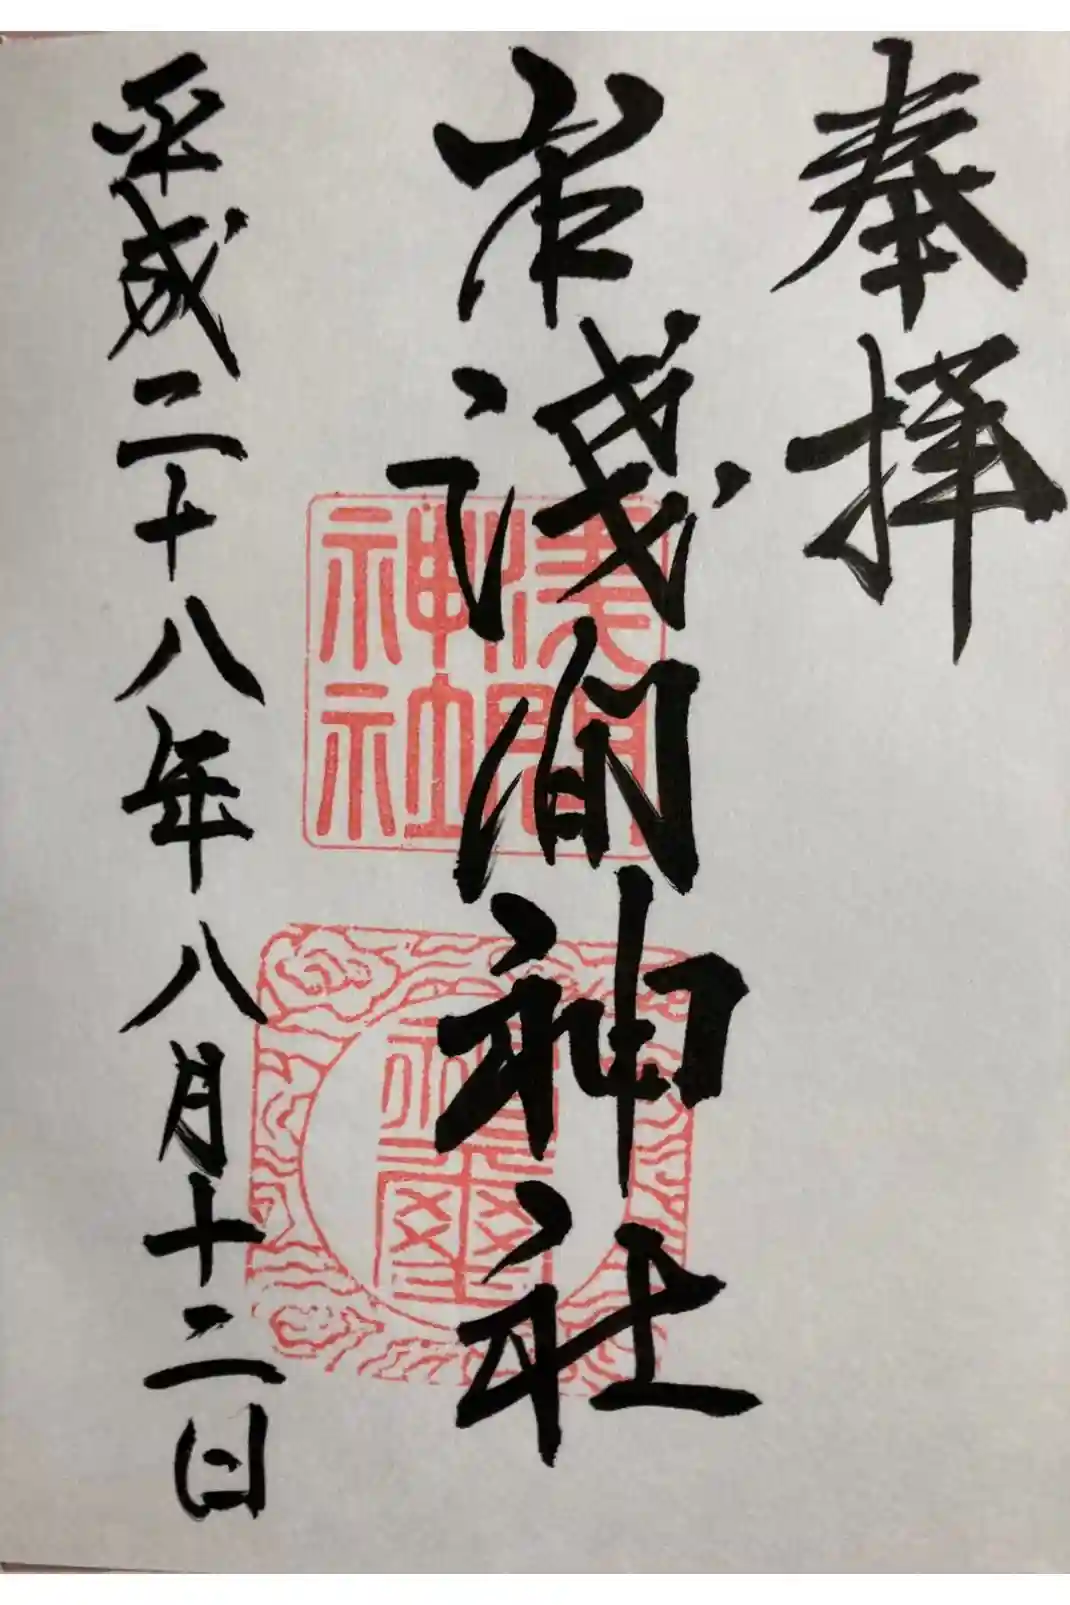 奉拝
浅間神社
浅間
神社
平成二十八年八月十二日